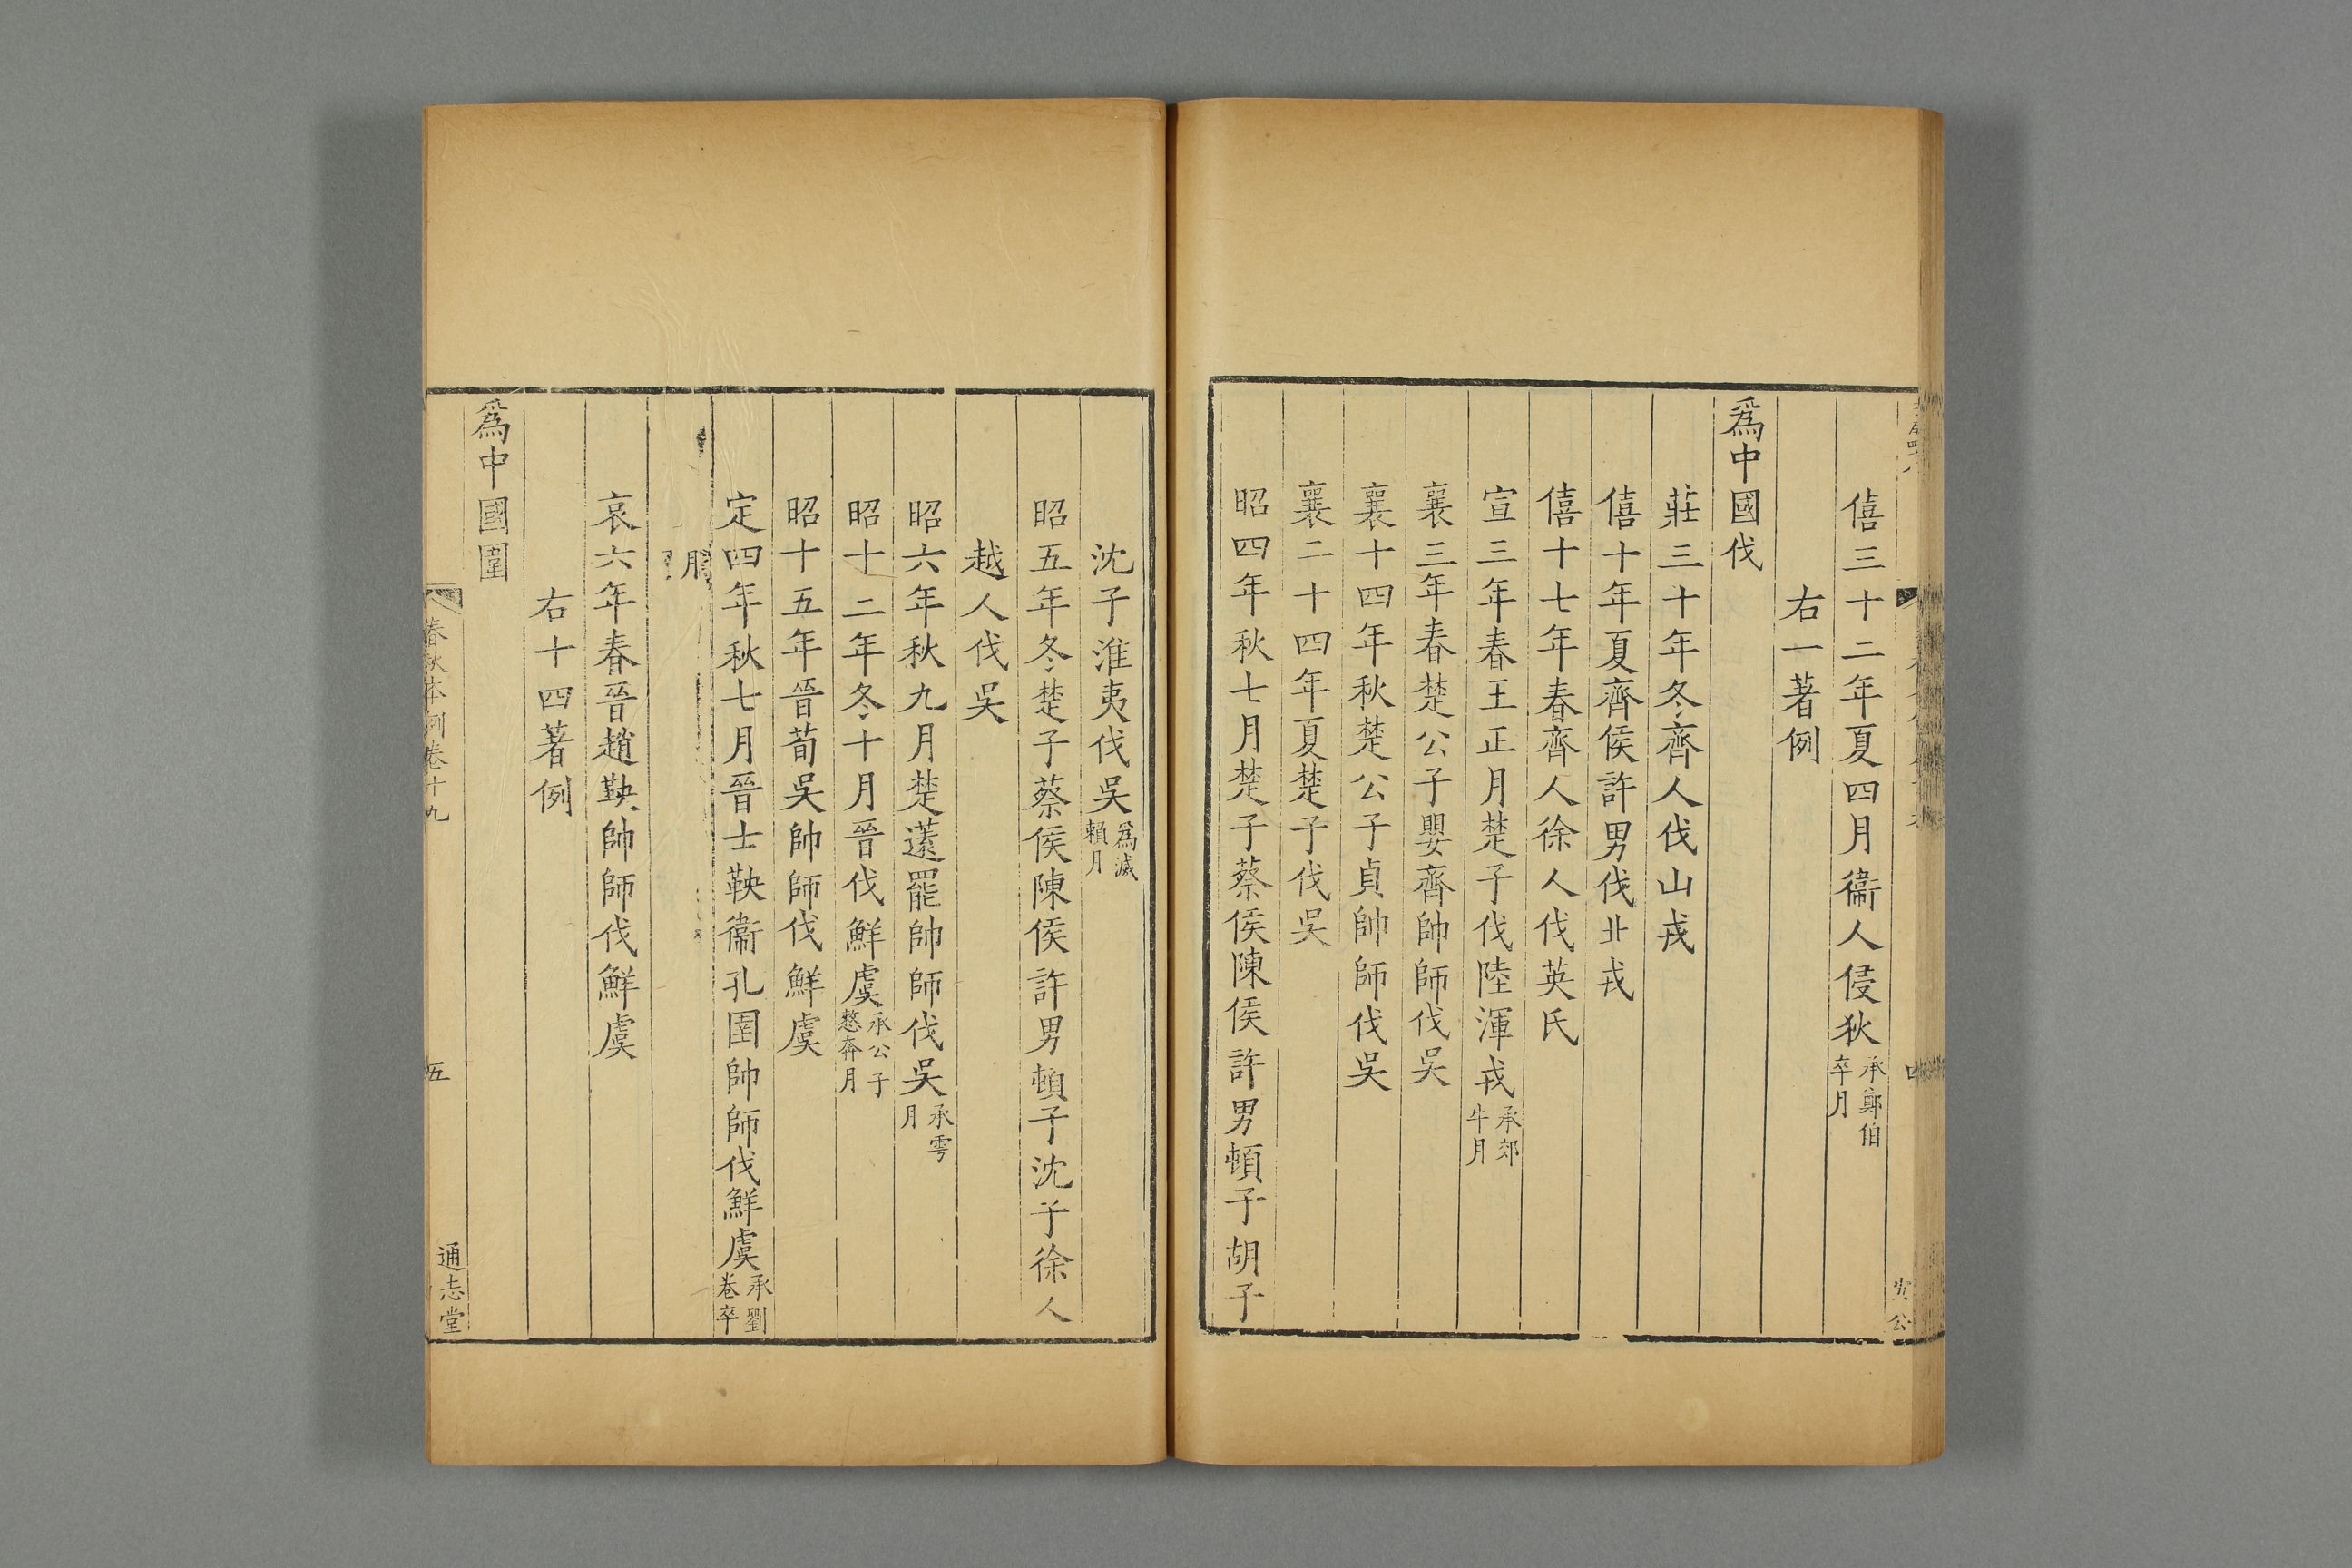 僖三十二年夏四月衞人侵狄承鄭伯卒月
右一著例
爲中國伐
莊三十年冬齊人伐山戎
僖十年夏齊侯許男伐北戎
僖十七年春齊人徐人伐英氏
宣三年春王正月楚子伐陸渾戎承郊牛月
襄三年春楚公子嬰齊帥師伐吳
襄十四年秋楚公子貞帥師伐吳
襄二十四年夏楚子伐吳
昭四年秋七月楚子蔡侯陳侯許男頓子胡子
沈子淮夷伐吳爲滅賴月
昭五年冬楚子蔡侯陳侯許男頓子沈子徐人
越人伐吳
昭六年秋九月楚薳罷帥師伐吳承雩月
昭十二年冬十月晉伐鮮虞承公子憖奔月
昭十五年晉荀吳帥師伐鮮虞
定四年秋七月晉士鞅衞孔圉帥師伐鮮虞承劉卷卒
月
哀六年春晉趙鞅帥師伐鮮虞
右十四著例
爲中國圍
春秋本例卷十九
五
通志堂